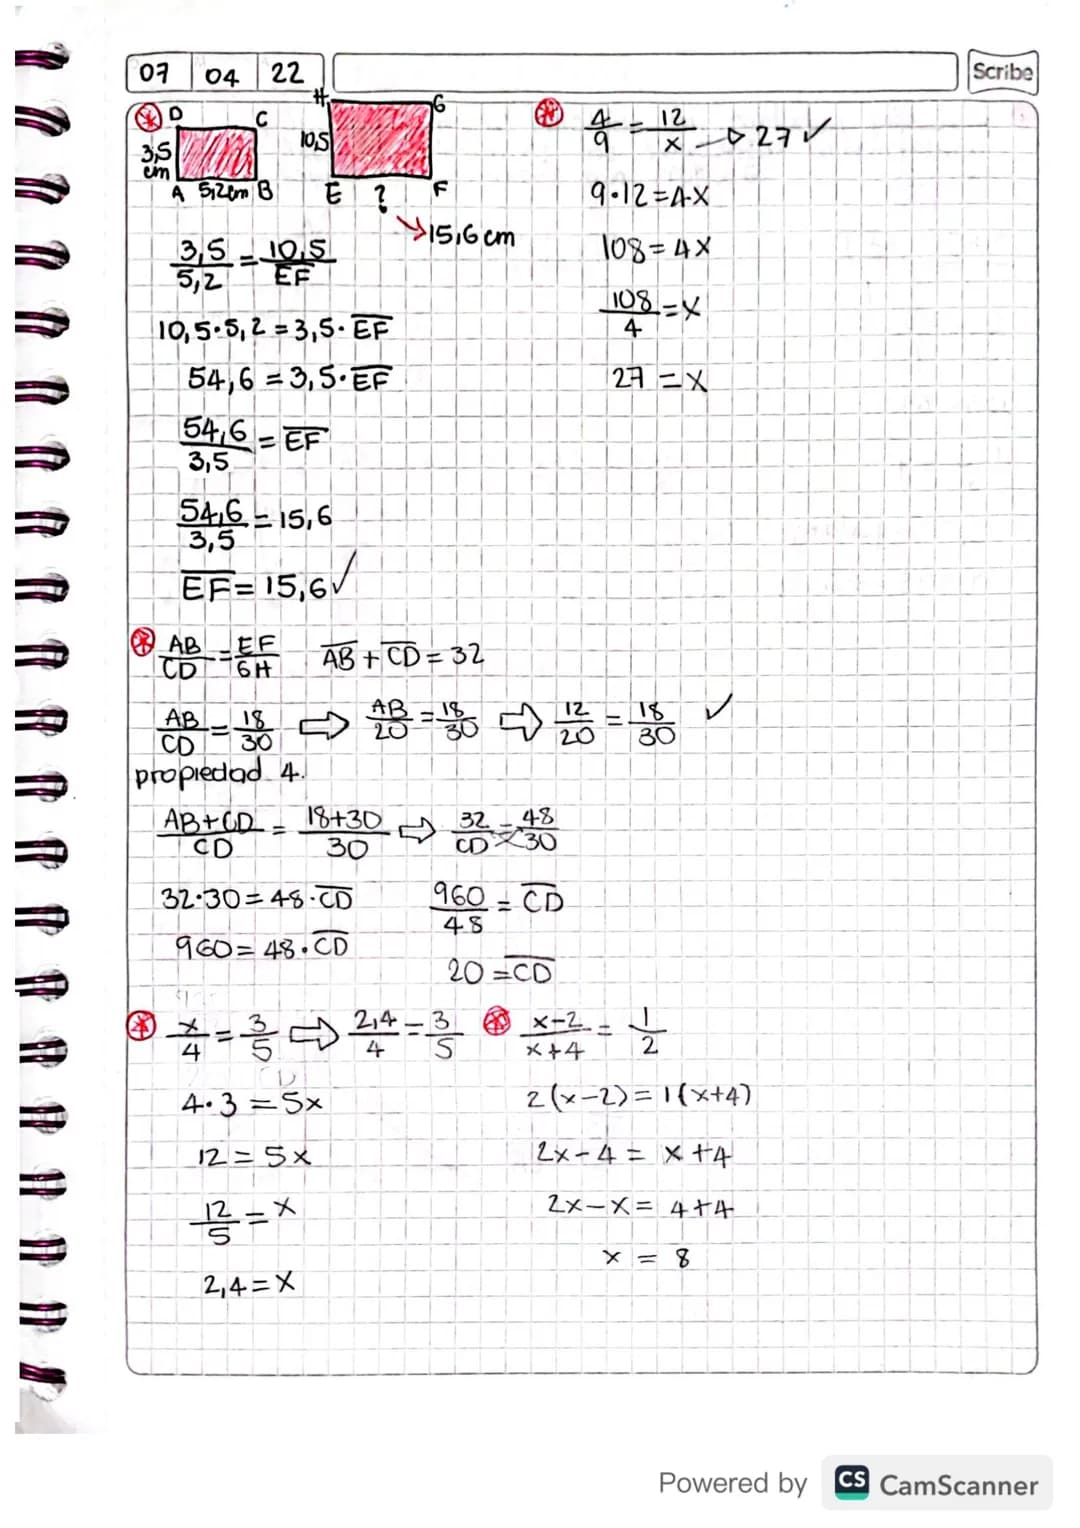 07 04 22
Scribe
D C
3,5 cm
A 5,2cm B
H G
10,5
E ? F
→15,6 cm
3,5/5,2 = 10,5/EF
10,5·5,2 = 3,5·EF
54,6 = 3,5·EF
54,6/3,5 = EF
54,6/3,5 = 15,6
EF = 15,6 ✓
4/9 = 12/x → 27 ✓
9·12=4·X
108 = 4X
108/4 = X
27 = X
AB/CD = EF/GH AB + CD = 32
AB/CD = 18/30 ⇨ AB/20 = 18/30 ⇨ 12/20 = 18/30 ✓
propiedad 4.
AB+CD/CD = 18+30/30 ⇨ 32/CD = 48/30
32·30 = 48·CD
960 = 48·CD
960/48 = CD
20 = CD
x/4 = 3/5 ⇨ 2,4/4 = 3/5
4·3 = 5x
12 = 5x
12/5 = x
2,4 = x
x-2/x+4 = 1/2
2(x-2) = 1(x+4)
2x-4 = x+4
2x-x = 4+4
x = 8
Powered by CS CamScanner